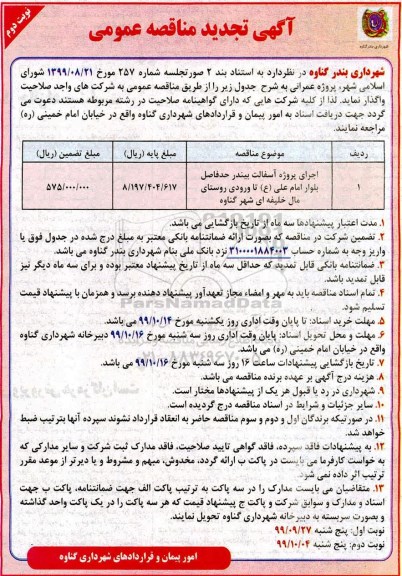 آگهی تجدید مناقصه عمومی
نوبت دوم
شهرداری بندر گناوه
شهرداری بندر گناوه در نظردارد به استناد بند ۲ صورتجلسه شماره ۲۵۷ مورخ ۱۳۹۹/۰۸/۲۱ شورای
اسلامی شهر، پروژه عمرانی به شرح جدول زیر را از طریق مناقصه عمومی به شرکت های واجد صلاحیت
واگذار نماید. لذا از کلیه شرکت هایی که دارای گواهینامه صلاحیت در رشته مربوطه هستند دعوت می
گردد جهت دریافت اسناد به امور پیمان و قراردادهای شهرداری گناوه واقع در خیابان امام خمینی (ره)
مراجعه نمایند.
ردیف موضوع مناقصه مبلغ پایه (ریال) مبلغ تضمین (ریال)
۱ اجرای پروژه آسفالت بیندر حدفاصل بلوار امام علی (ع) تا ورودی روستای مال خلیفه ای شهر گناوه ۸/۱۹۷/۴۰۴/۶۱۷ ۵۷۵/۰۰۰/۰۰۰
۱. مدت اعتبار پیشنهادها سه ماه از تاریخ بازگشایی می باشد.
۲. تضمین شرکت در مناقصه که بصورت ارائه ضمانتنامه بانکی معتبر به مبلغ درج شده در جدول فوق یا
واریز وجه به شماره حساب ۳۱۰۰۰۰۱۸۸۴۰۰۳ نزد بانک ملی بنام شهرداری بندر گناوه می باشد.
۳. ضمانتنامه بانکی قابل تمدید که حداقل سه ماه از تاریخ پیشنهاد معتبر بوده و برای سه ماه دیگر نیز
قابل تمدید باشد.
۴. تمام اسناد مناقصه باید به مهر و امضاء مجاز تعهدآور پیشنهاد دهنده برسد و همزمان با پیشنهاد قیمت
تسلیم شود.
۵. مهلت خرید اسناد: تا پایان وقت اداری روز یکشنبه مورخ ۹۹/۱۰/۱۴ می باشد.
۶. مهلت و محل تحویل اسناد: پایان وقت اداری روز سه شنبه مورخ ۹۹/۱۰/۱۶ دبیرخانه شهرداری گناوه
واقع در خیابان امام خمینی (ره) می باشد.
۷. تاریخ بازگشایی پیشنهادات ساعت ۱۶ روز سه شنبه مورخ ۹۹/۱۰/۱۶ می باشد.
۸. هزینه درج آگهی بر عهده برنده مناقصه می باشد.
۹. شهرداری در رد یا قبول هر یک از پیشنهادها مختار است.
۱۰. سایر جزئیات و شرایط در اسناد مناقصه درج گردیده است.
۱۱. در صورتیکه برندگان اول و دوم و سوم مناقصه حاضر به انعقاد قرارداد نشوند سپرده آنها بترتیب ضبط
خواهد شد.
۱۲. به پیشنهادات فاقد سپرده، فاقد گواهی تایید صلاحیت، فاقد مدارک ثبت شرکت و سایر مدارکی که
به خواست کارفرما می بایست در پاکت ب ارائه گردد، مخدوش، مبهم و مشروط و یا دیرتر از موعد مقرر
ترتیب اثر داده نمی شود.
۱۳. متقاضیان می بایست مدارک را در سه پاکت به ترتیب پاکت الف جهت ضمانتنامه، پاکت ب جهت
اسناد و مدارک و سوابق شرکت و پاکت ج پیشنهاد قیمت که هر سه پاکت را در یک پاکت واحد گذاشته
و بصورت سربسته به دبیرخانه شهرداری گناوه تحویل نمایند.
نوبت اول: پنج شنبه ۹۹/۰۹/۲۷
نوبت دوم: پنج شنبه ۹۹/۱۰/۰۴
امور پیمان و قراردادهای شهرداری گناوه
ParsNamadData